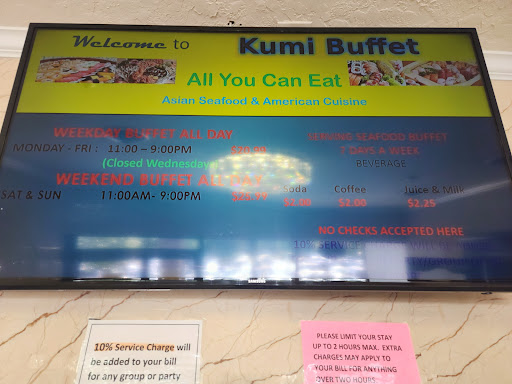 Welcome to Kumi Buffet
All You Can Eat
Asian Seafood & American Cuisine
WEEKDAY BUFFET ALL DAY
MONDAY - FRI : 11:00 – 9:00PM
(Closed Wednesday)
WEEKEND BUFFET ALL DAY
SAT & SUN 11:00AM- 9:00PM
SERVING SEAFOOD BUFFET
7 DAYS A WEEK
BEVERAGE
Soda Coffee Juice & Milk
$2.00 $2.00 $2.25
NO CHECKS ACCEPTED HERE
10% SERVICE
SAMSUNG
10% Service Charge will
be added to your bill
for any group or party
PLEASE LIMIT YOUR STAY
UP TO 2 HOURS MAX. EXTRA
CHARGES MAY APPLY TO
YOUR BILL FOR ANYTHING
OVER TWO HOURS